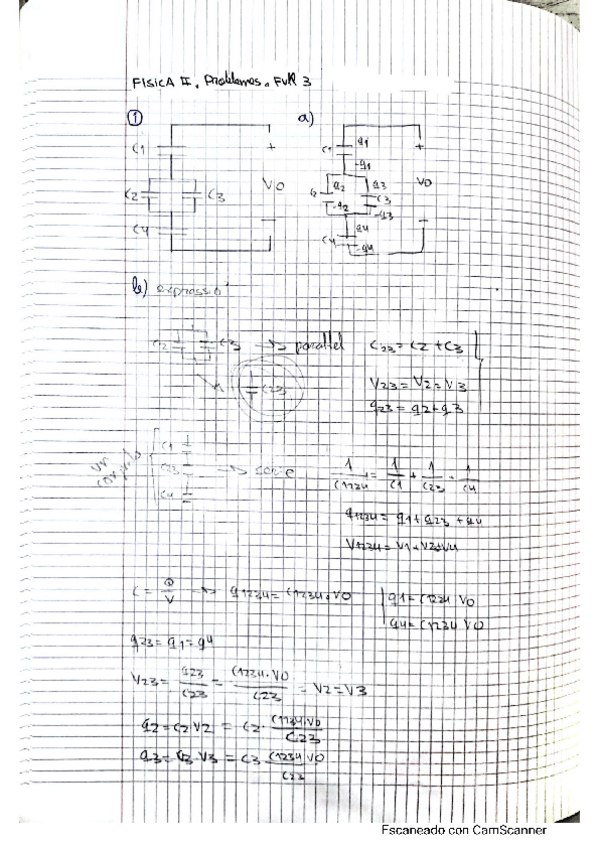 FISICA II. Problemas. FUR 3
① a)
C1 + C1 q1 +
-q1
C2 C3 V0 q2 q3 C3 V0
-q2 -q3
C4 - C4 q4 -
-q4
b) expressió
C2 C3 → parallel C23 = C2 + C3
C23 V23 = V2 = V3
q23 = q2 + q3
C1
C23 → serie 1/C1234 = 1/C1 + 1/C23 + 1/C4
C4
q1234 = q1 + q23 + q4
V1234 = V1 + V23 + V4
C = Q/V → q1234 = C1234 · V0 q1 = C1234 V0
q4 = C1234 V0
q23 = q1 = q4
V23 = q23/C23 = C1234 · V0/C23 = V2 = V3
q2 = C2 V2 = C2 · C1234 · V0/C23
q3 = C3 · V3 = C3 · C1234 V0/C23
Escaneado con CamScanner